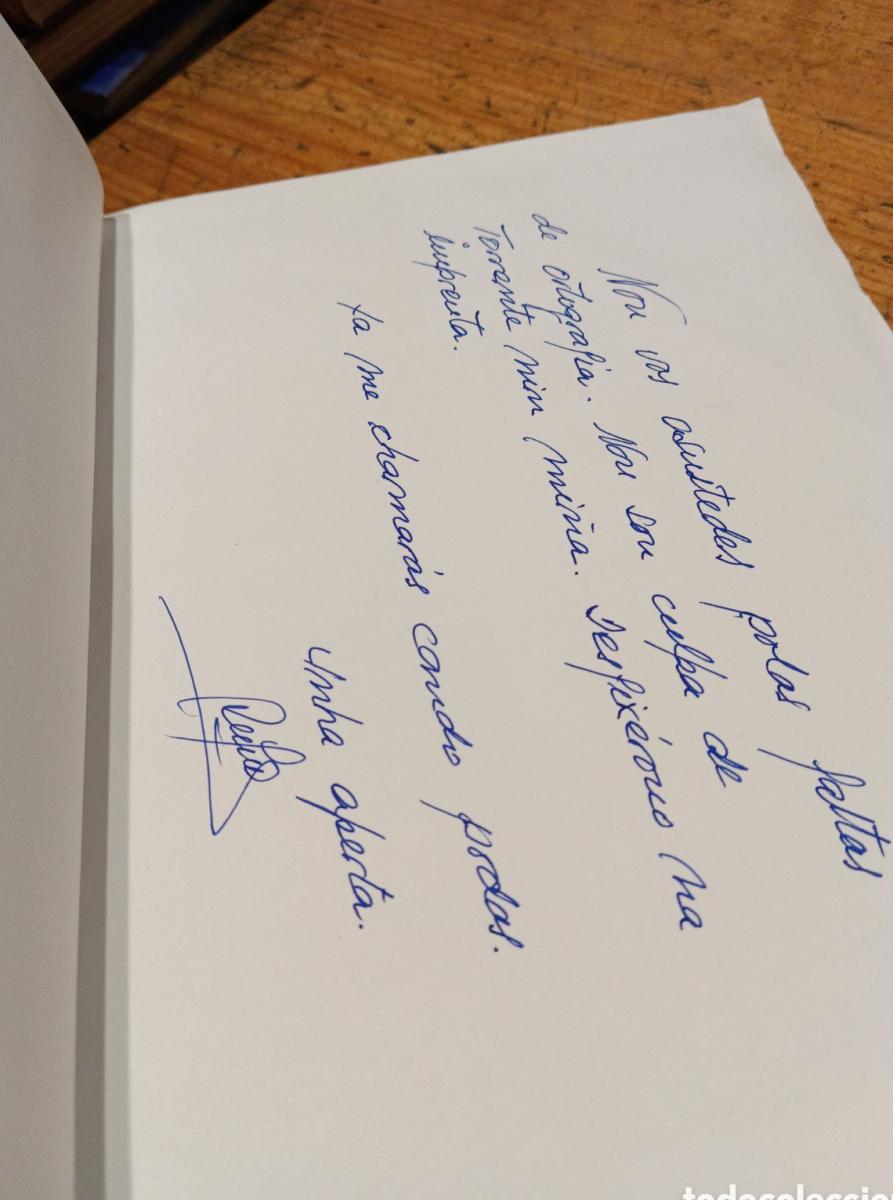 Non vos asustedes polas faltas
de ortografía. Non son culpa de
Torrente nin miña. Desfixérono na
imprenta.
Xa me chamarás cando podas.
Unha aperta.
todocoleccion